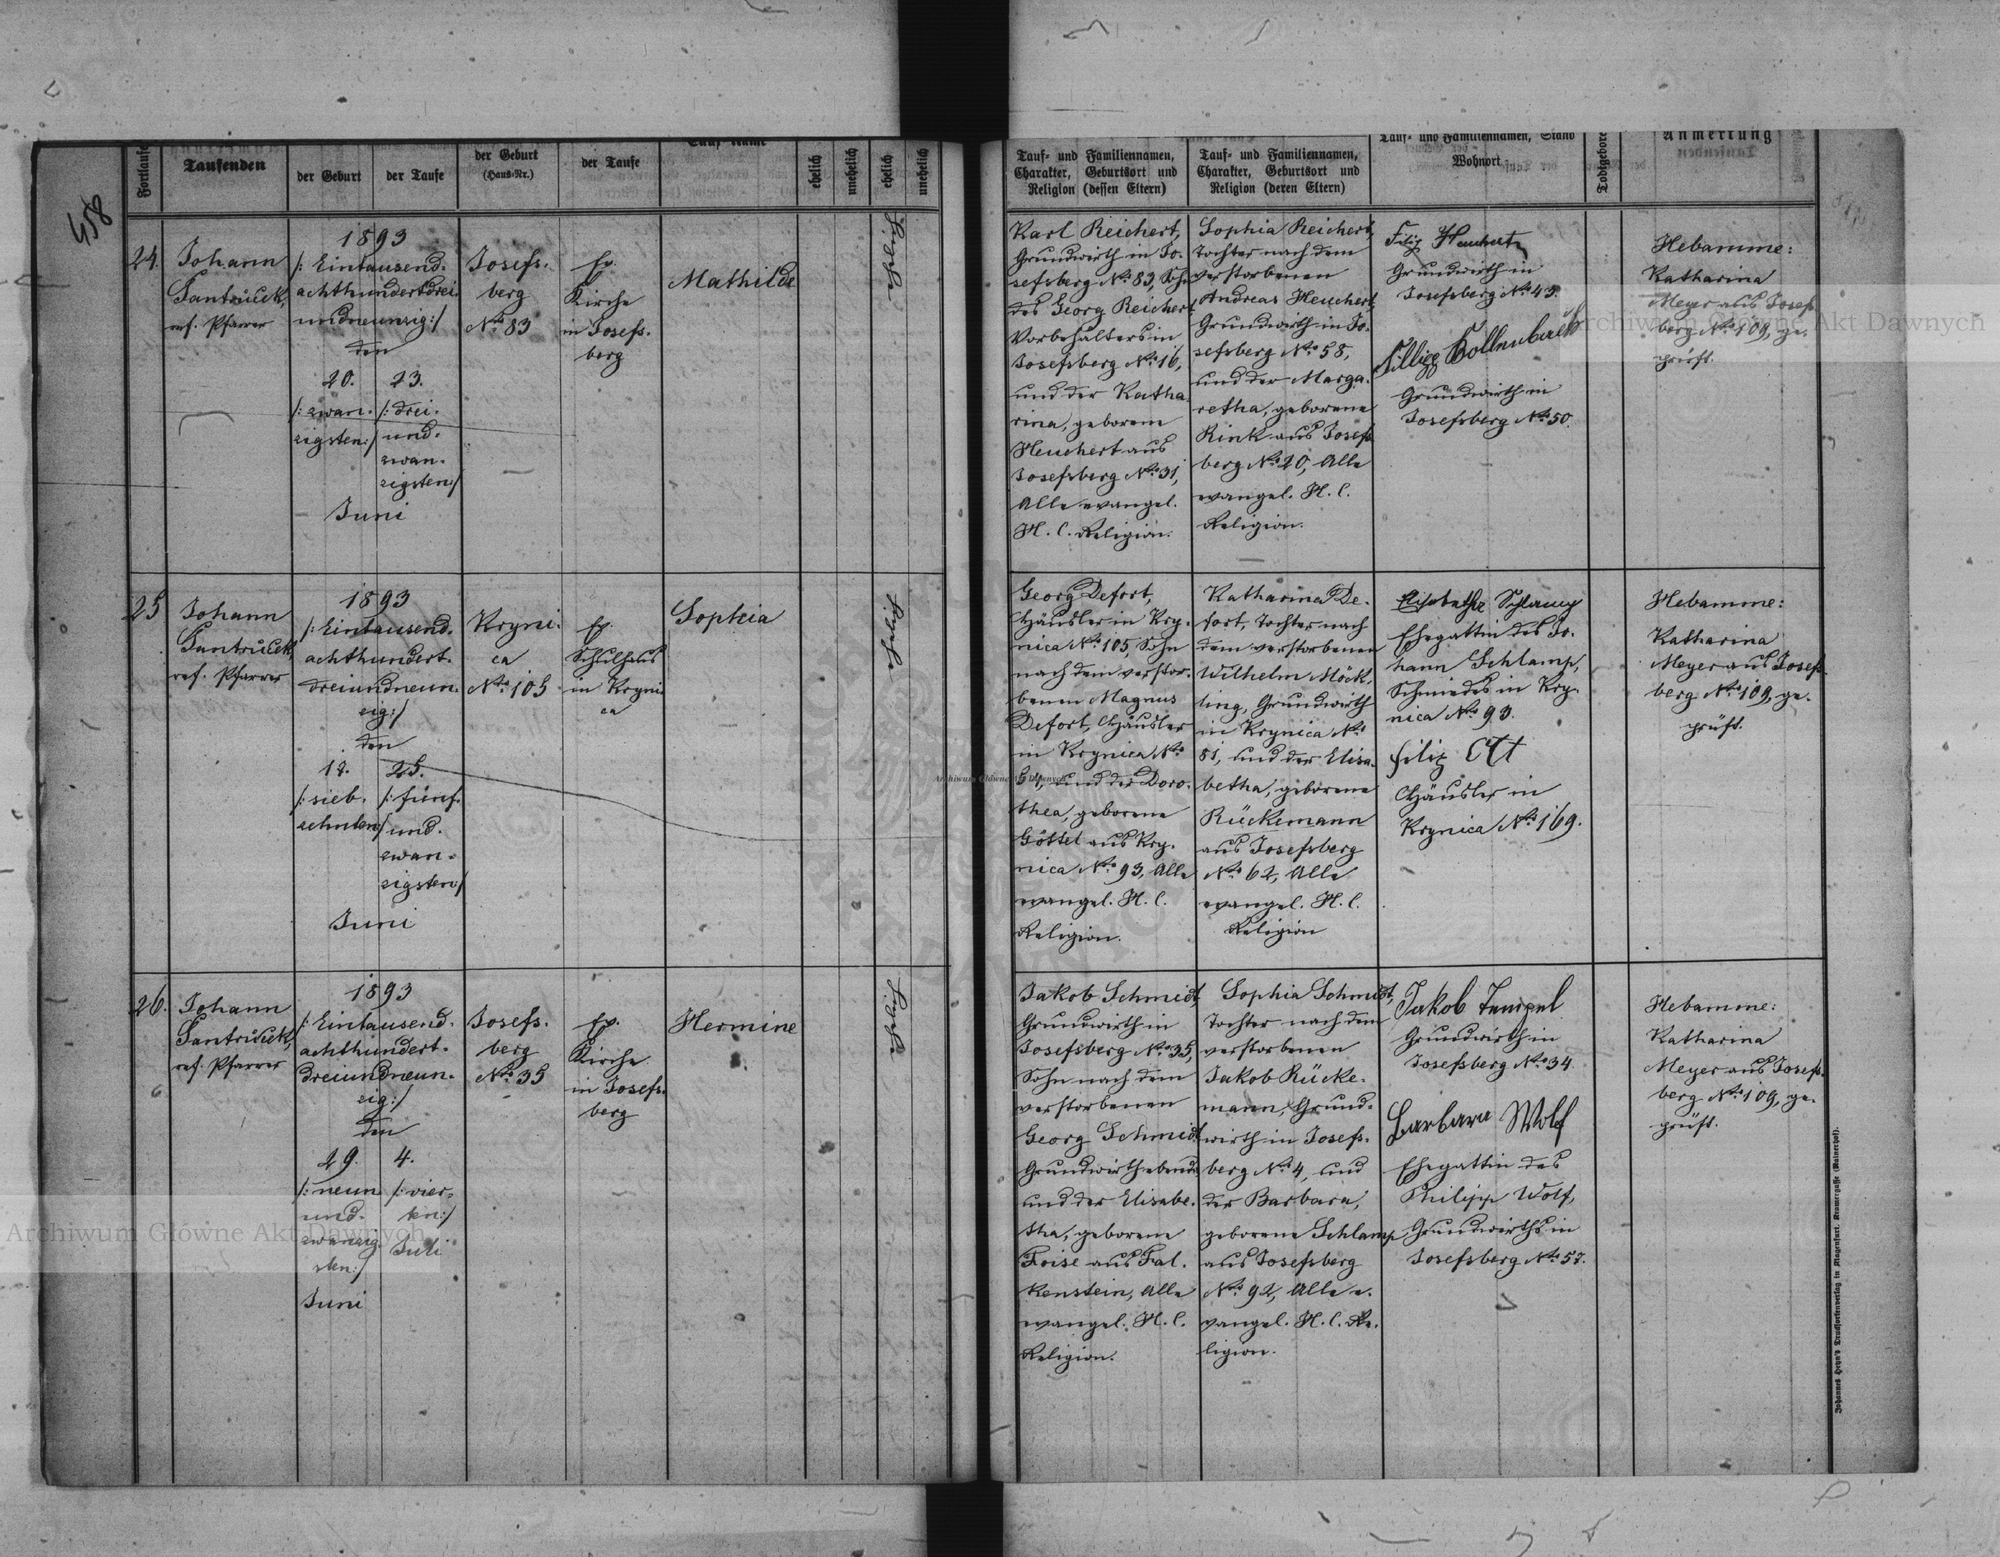 458
Fortlaufe
Taufenden
der Geburt
der Taufe
der Geburt
(Haus-Nr.)
der Taufe
Tauf-Name
ehelich
unehelich
ehelich
unehelich
24.
Johann
ref. Pfarrer
1893
/: Eintausend-
achthundertdrei-
undneunzig:/
den
20.
/: zwan-
zigsten:/
23.
/: drei-
und-
zwan-
zigsten:/
Juni
Josefs-
berg
No 83
Ev.
Kirche
in Josefs-
berg
Mathilde
25
Johann
ref. Pfarrer
1893
/: Eintausend-
achthundert-
dreiundneun-
zig:/
den
17.
/: sieb-
zehnten:/
25.
/: fünf-
und-
zwan-
zigsten:/
Juni
Kryni-
ca
No 105
Ev.
Schulhaus
in Kryni-
ca
Sophia
26.
Johann
ref. Pfarrer
1893
/: Eintausend-
achthundert-
dreiundneun-
zig:/
den
29.
/: neun
und-
zwanzig-
sten:/
Juni
4.
/: vier-
ten:/
Juli
Josefs-
berg
No 35
Ev.
Kirche
in Josefs-
berg
Hermine
Tauf- und Familiennamen,
Charakter, Geburtsort und
Religion (dessen Eltern)
Tauf- und Familiennamen,
Charakter, Geburtsort und
Religion (deren Eltern)
Tauf- und Familiennamen, Stand
Wohnort
Todtgebore
Anmerkung
Karl Reichert,
Grundwirth in Jo-
sefsberg No 83, Sohn
des Georg Reichert
Vorbehalters in
Josefsberg No 16,
und der Katha-
rina, geborene
Heuchert aus
Josefsberg No 31,
Alle evangel.
H. C. Religion.
Sophia Reichert,
Tochter nach dem
verstorbenen
Andreas Heuchert
Grundwirth in Jo-
sefsberg No 58,
und der Marga-
retha, geborene
Rink aus Josefs-
berg No 20, Alle
evangel. H. C.
Religion.
Filip Heuchert
Grundwirth in
Josefsberg No 43.
Fillipp Bollenbach
Grundwirth in
Josefsberg No 50.
Hebamme:
Katharina
Meyer aus Josefs-
berg No 109, ge-
prüft.
Georg Defort,
Häusler in Kry-
nica No 105, Sohn
nach dem verstor-
benen Magnus
Defort, Häusler
in Krynica No
und der Doro-
thea, geborene
Göttel aus Kry-
nica No 93, Alle
evangel. H. C.
Religion.
Katharina De-
fort, Tochter nach
dem verstorbenen
Wilhelm Möck-
ling, Grundwirth
in Krynica No
81, und der Elisa-
betha, geborene
Rückemann
aus Josefsberg
No 62, Alle
evangel. H. C.
Religion
Elisabetha Schlamp
Ehegattin des Jo-
hann Schlamp,
Schmiedes in Kry-
nica No 93.
Filip Ott
Häusler in
Krynica No 169.
Hebamme:
Katharina
Meyer aus Josefs-
berg No 109, ge-
prüft.
Jakob Schmidt,
Grundwirth in
Josefsberg No 35,
Sohn nach dem
verstorbenen
Georg Schmidt
Grundwirth ebenda
und der Elisabe-
tha, geborene
Foise aus Fal-
kenstein, Alle
evangel. H. C.
Religion.
Sophia Schmidt,
Tochter nach dem
verstorbenen
Jakob Rücke-
mann, Grund-
wirth in Josefs-
berg No 4, und
der Barbara,
geborene Schlamp
aus Josefsberg
No 92, Alle e-
vangel. H. C. Re-
ligion.
Jakob Tempel
Grundwirth in
Josefsberg No 34
Barbara Wolf
Ehegattin des
Philipp Wolf,
Grundwirths in
Josefsberg No 57.
Hebamme:
Katharina
Meyer aus Josefs-
berg No 109, ge-
prüft.
Archiwum Główne Akt Dawnych
Archiwum Główne Akt Dawnych
Archiwum Główne Akt Dawnych
Johannes Heyn's Drucksortenverlag in Klagenfurt, Kramergasse (Rainerhof).